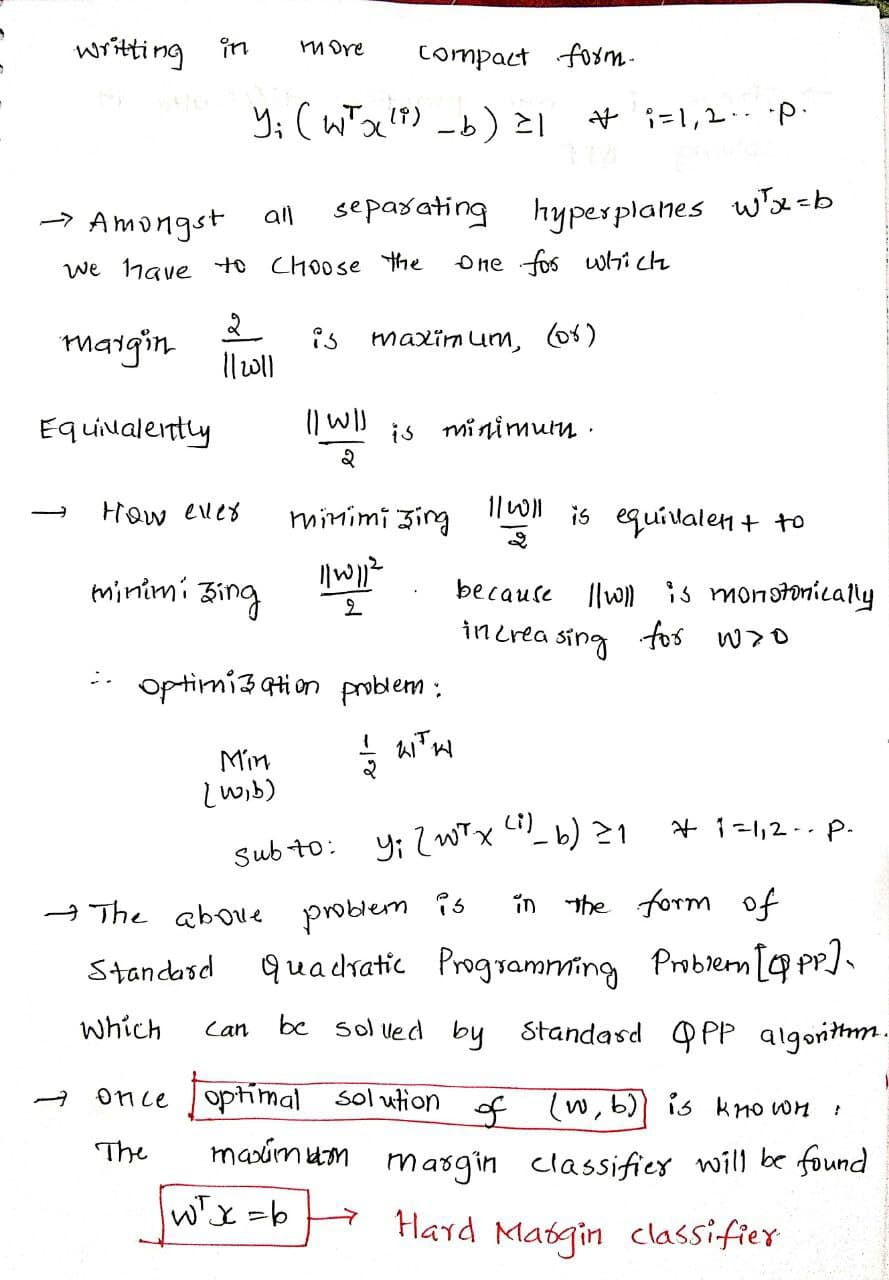 writting in more compact form.
yᵢ (wᵀx⁽ⁱ⁾ - b) ≥ 1 ∀ i=1,2...p.
→ Amongst all separating hyperplanes wᵀx=b
we have to choose the one for which
margin 2/||w|| is maximum, (or)
Equivalently ||w||/2 is minimum.
→ How ever minimizing ||w||/2 is equivalent to
minimizing ||w||²/2 . because ||w|| is monotonically
increasing for w>0
∴ optimization problem:
Min 1/2 wᵀw
(w,b)
sub to: yᵢ (wᵀx⁽ⁱ⁾ - b) ≥ 1 ∀ i=1,2.. p.
→ The above problem is in the form of
Standard Quadratic Programming Problem [QPP].
which can be solved by standard QPP algorithm.
→ once optimal solution of (w,b) is known,
The maximum margin classifier will be found
wᵀx=b → Hard Margin classifier